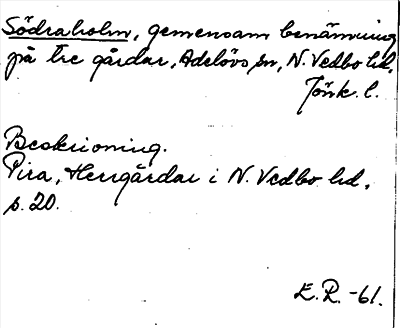 Södraholm, gemensam benämning
på tre gårdar, Adelövs sn, N. Vedbo hd,
Jönk. l.
Beskrivning.
Pira, Herrgårdar i N. Vedbo hd,
s. 20.
E. R. -61.